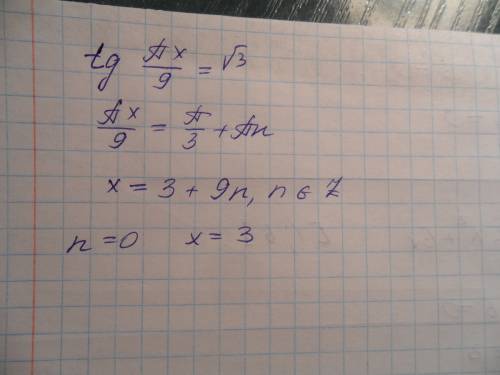 tg πx/9 = √3
πx/9 = π/3 + πn
x = 3 + 9n, n ∈ Z
n = 0 x = 3